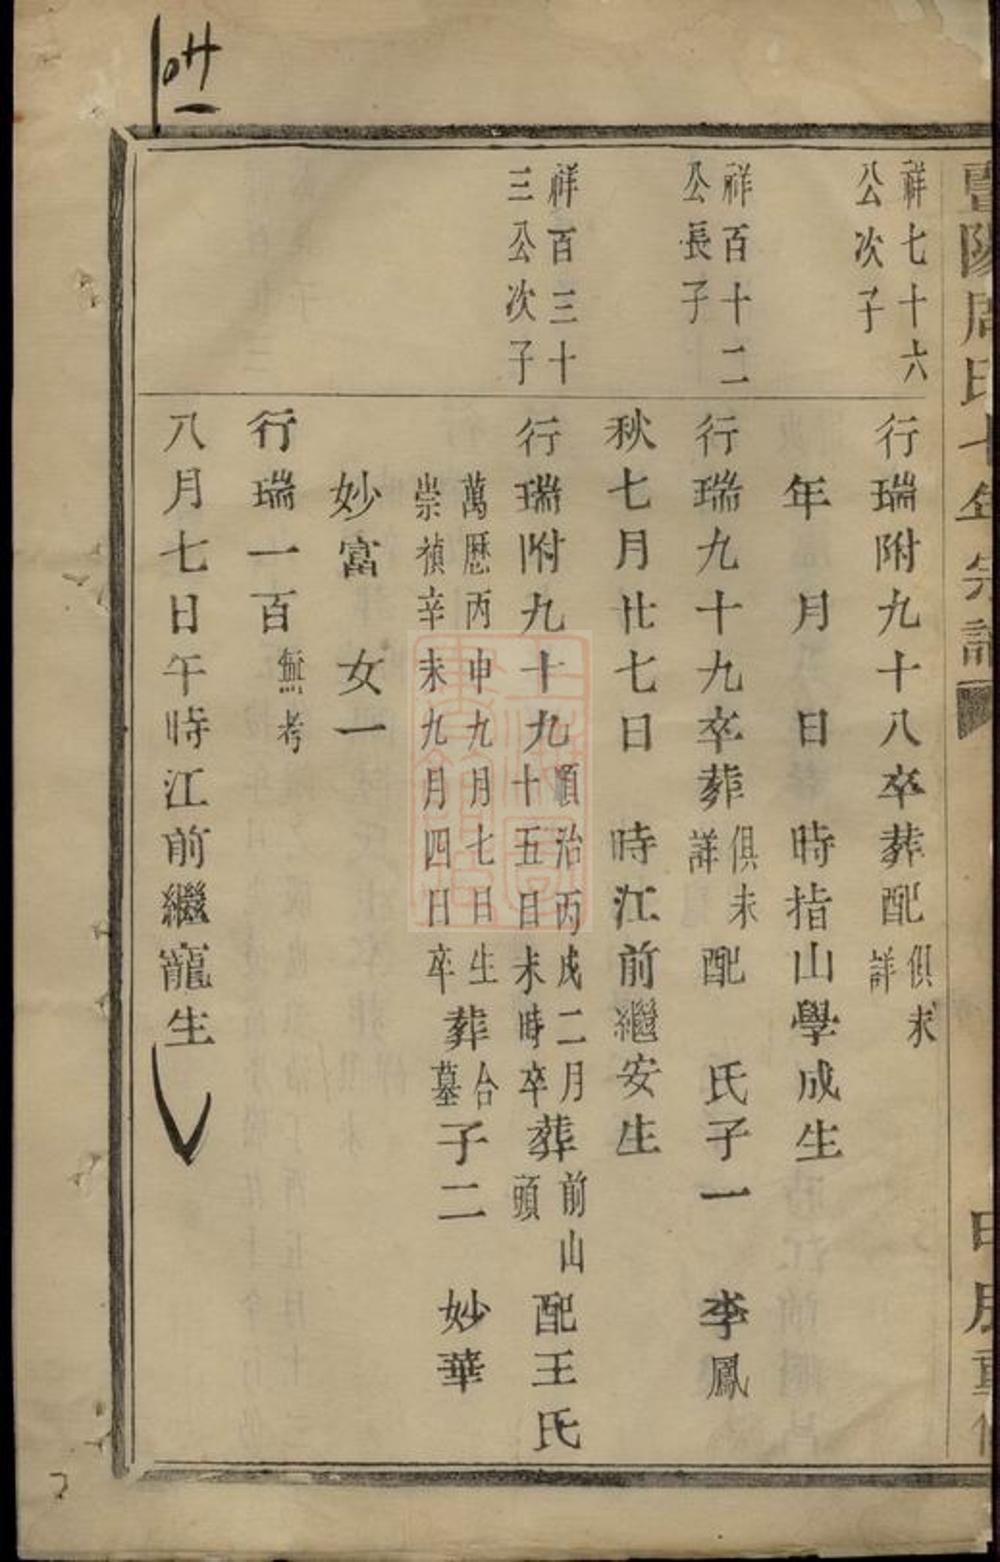 祥七十六
公次子
行瑞附九十八卒葬配俱未
詳
年月日時指山學成生
祥百十二
公長子
行瑞九十九卒葬俱未
詳配氏子一李鳳
秋七月廿七日時江前繼安生
祥百三十
三公次子
行瑞附九十九順治丙戌二月
十五日未時卒葬前山
頭配王氏
萬歷丙申九月七日生
崇禎辛未九月四日卒葬合
墓子二妙華
妙富女一
行瑞一百無考
八月七日午時江前繼寵生